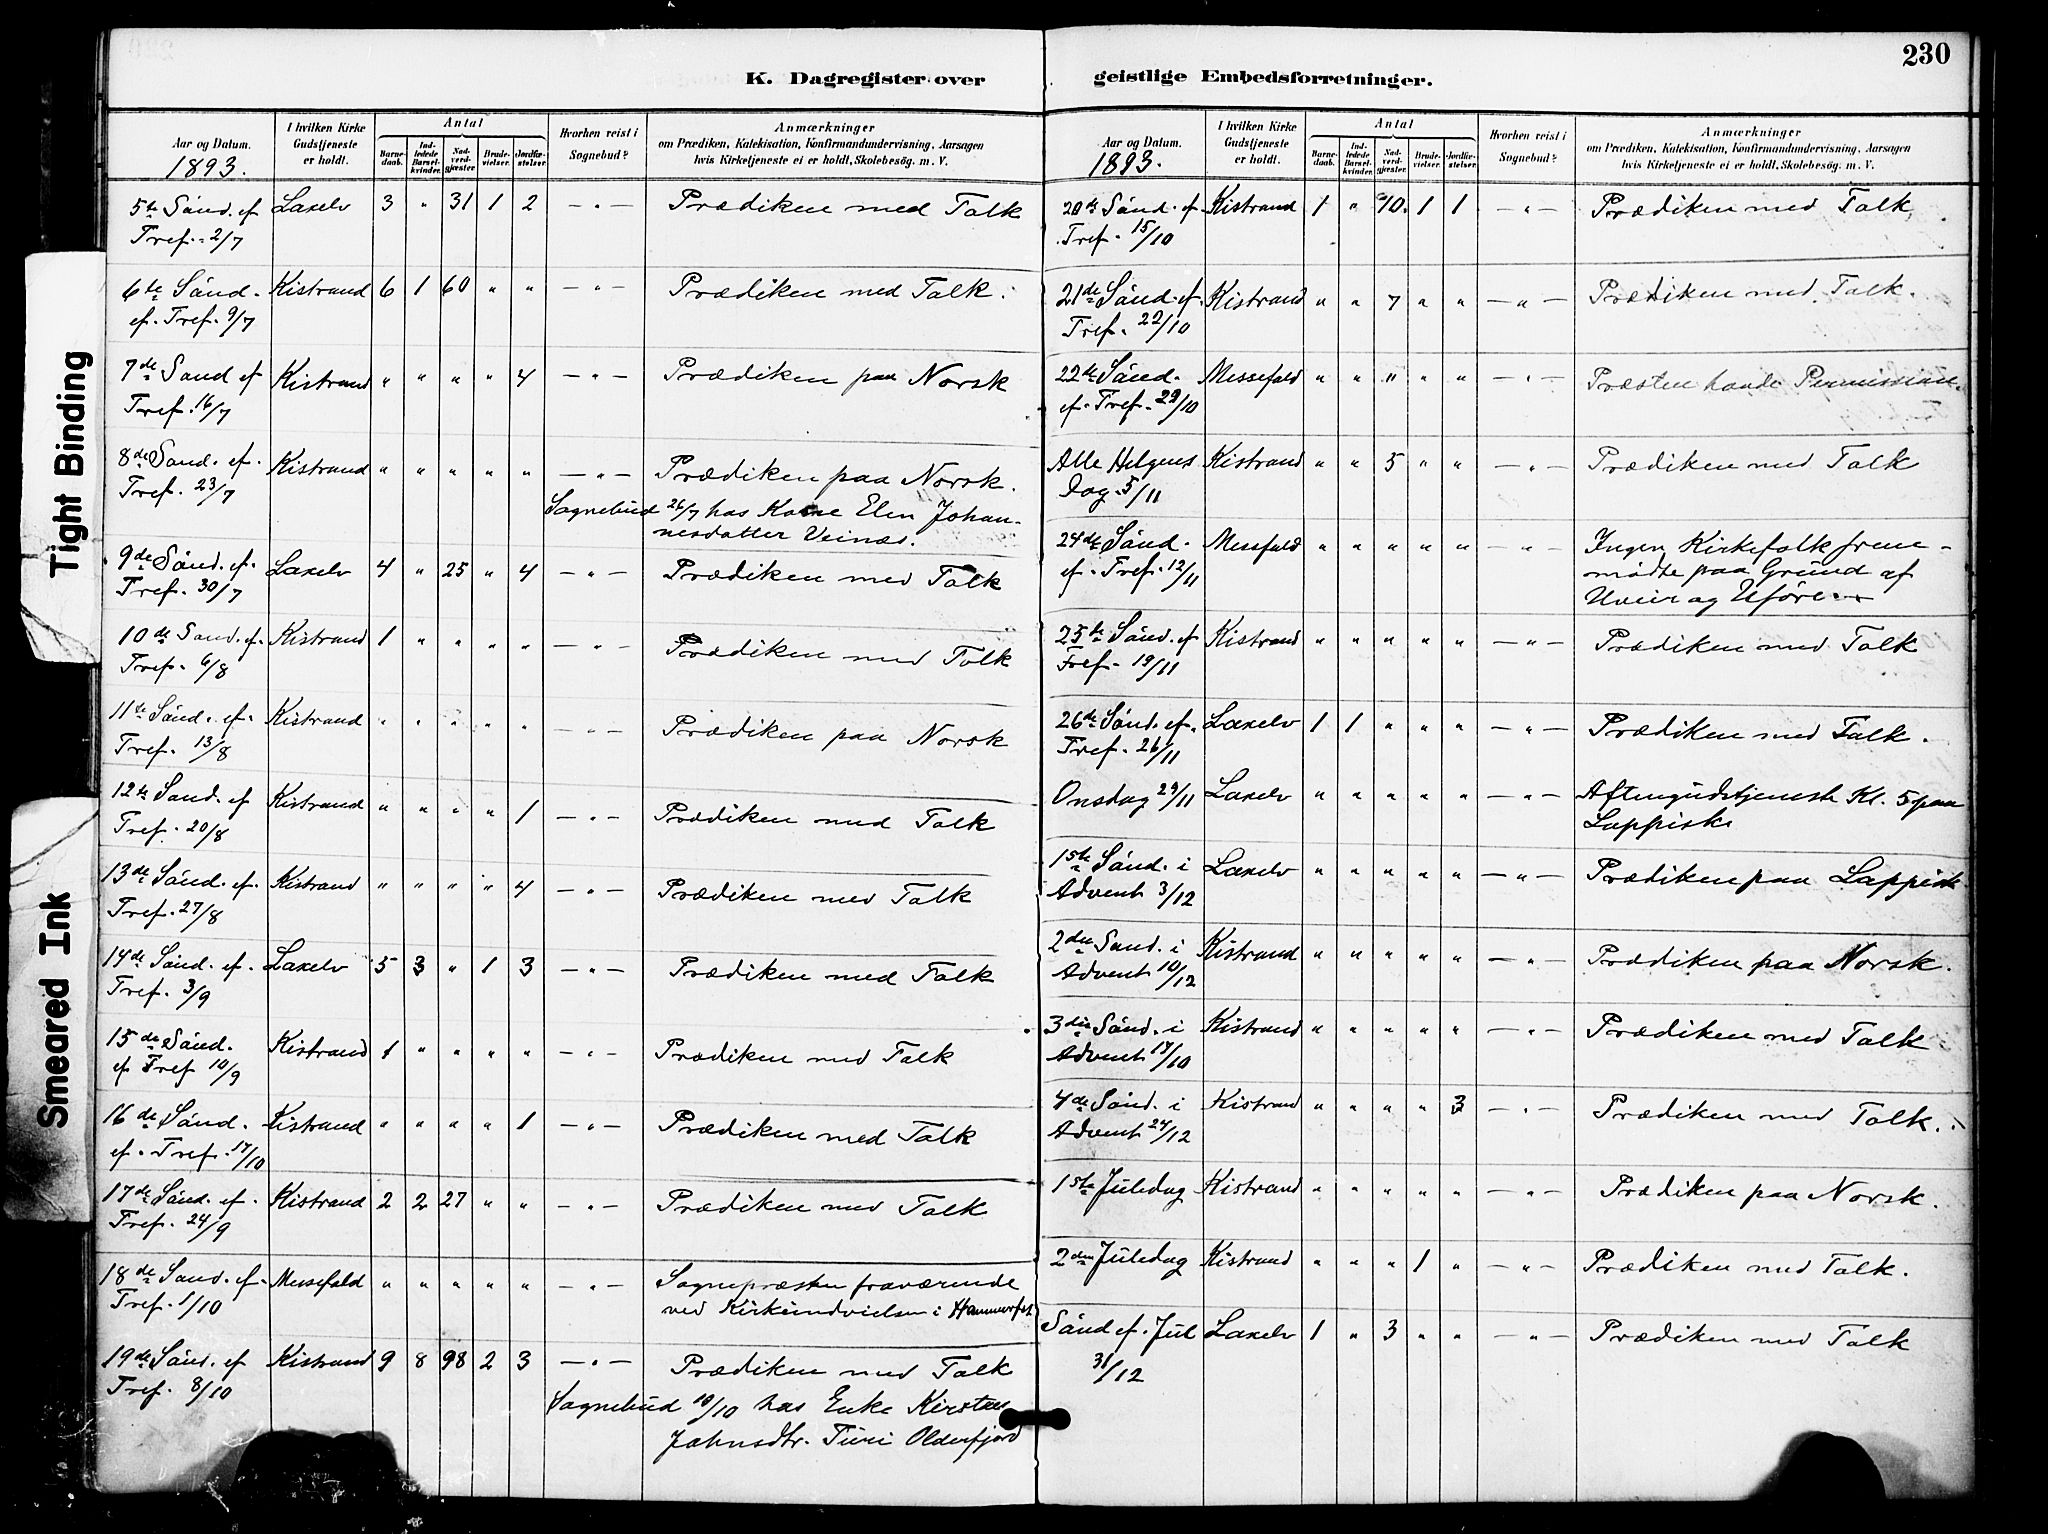 230
K. Dagregister over geistlige Embedsforretninger.
Tight Binding
Smeared Ink
Aar og Datum.
1893.
I hvilken Kirke Gudstjeneste er holdt.
Antal
Barnedaab.
Indledede Barselkvinder.
Nadverdgjæster
Brudevielser.
Jordfæstelser.
Hvorhen reist i Sognebud?
Anmærkninger
om Prædiken, Katekisation, Konfirmandundervisning, Aarsagen
hvis Kirketjeneste ei er holdt, Skolebesög. m. V.
5te Sönd. ef Laxelv 3 " 31 1 2 — " — Prædiken med Tolk
Tref. 2/7
6te Sönd. Kistrand 6 1 60 " " — " — Prædiken med Tolk.
ef. Tref. 9/7
7de Sönd ef Kistrand " " " " 4 — " — Prædiken paa Norsk
Tref. 16/7
8de Sönd. ef. Kistrand " " " " " — " — Prædiken paa Norsk.
Tref. 23/7
Sognebud 26/7 hos Kone Elen Johannesdatter Veinæs.
9de Sönd. ef. Laxelv 4 " 25 " 4 — " — Prædiken med Tolk
Tref. 30/7
10de Sönd. ef. Kistrand 1 " " " " — " — Prædiken med Tolk
Tref. 6/8
11te Sönd. ef. Kistrand " " " " " — " — Prædiken paa Norsk
Tref. 13/8
12te Sönd. ef Kistrand " " " " 1 — " — Prædiken med Tolk
Tref. 20/8
13de Sönd. ef. Kistrand " " " " 4 — " — Prædiken med Tolk
Tref. 27/8
14de Sönd. ef. Laxelv 5 3 " 1 3 — " — Prædiken med Tolk
Tref. 3/9
15de Sönd. Kistrand 1 " " " " — " — Prædiken med Tolk
ef Tref 10/9
16de Sönd. Kistrand " " " " 1 — " — Prædiken med Tolk
ef. Tref. 17/10
17de Sönd. ef. Kistrand 2 2 27 " " — " — Prædiken med Tolk
Tref. 24/9
18de Sönd. ef. Messefald " " " " " — " — Sognepræsten fraværende
Tref. 1/10 ved Kirkeindvielsen i Hammerfest
19de Sönd. ef Kistrand 9 8 98 2 3 — " — Prædiken med Tolk
Tref. 8/10
Sognebud 10/10 hos Enke Kirsten
Johnsdtr. Turi Olderfjord
Aar og Datum.
1893.
I hvilken Kirke Gudstjeneste er holdt.
Antal
Barnedaab.
Indledede Barselkvinder.
Nadverdgjæster
Brudevielser.
Jordfæstelser.
Hvorhen reist i Sognebud?
Anmærkninger
om Prædiken, Katekisation, Konfirmandundervisning, Aarsagen
hvis Kirketjeneste ei er holdt, Skolebesög. m. V.
20de Sönd. ef. Kistrand 1 " 10. 1 1 — " — Prædiken med Tolk.
Tref. 15/10
21de Sönd. ef. Kistrand " " 7 " " — " — Prædiken med Tolk.
Tref. 22/10
22de Sönd. Messefald " " " " " — " — Præsten havde Permission.
ef. Tref. 29/10
Alle Helgens Kistrand " " 5 " " — " — Prædiken med Tolk
Dag. 5/11
24de Sönd. Messfald " " " " " — " — Ingen Kirkefolk frem-
ef. Tref. 12/11 mödte paa Grund af
Uveir og Uföre.
25te Sönd. ef Kistrand " " " " " — " — Prædiken med Tolk
Tref. 19/11
26de Sönd. ef. Laxelv 1 1 " " " — " — Prædiken med Tolk.
Tref. 26/11
Onsdag 29/11 Laxelv " " " " " — " — Aftengudstjeneste Kl. 5 paa
Lappisk
1ste Sönd. i Laxelv " " " " " — " — Prædiken paa Lappisk
Advent 3/12
2den Sönd. i Kistrand " " " " " — " — Prædiken paa Norsk.
Advent 10/12
3die Sönd. i Kistrand " " " " " — " — Prædiken med Tolk
Advent 17/10
4de Sönd. i Kistrand " " " " 3 — " — Prædiken med Tolk.
Advent 24/12
1ste Juledag Kistrand " " " " " — " — Prædiken paa Norsk.
2den Juledag Kistrand " " " 1 " — " — Prædiken med Tolk.
Sönd ef. Jul Laxelv 1 " 3 " " — " — Prædiken med Tolk
31/12